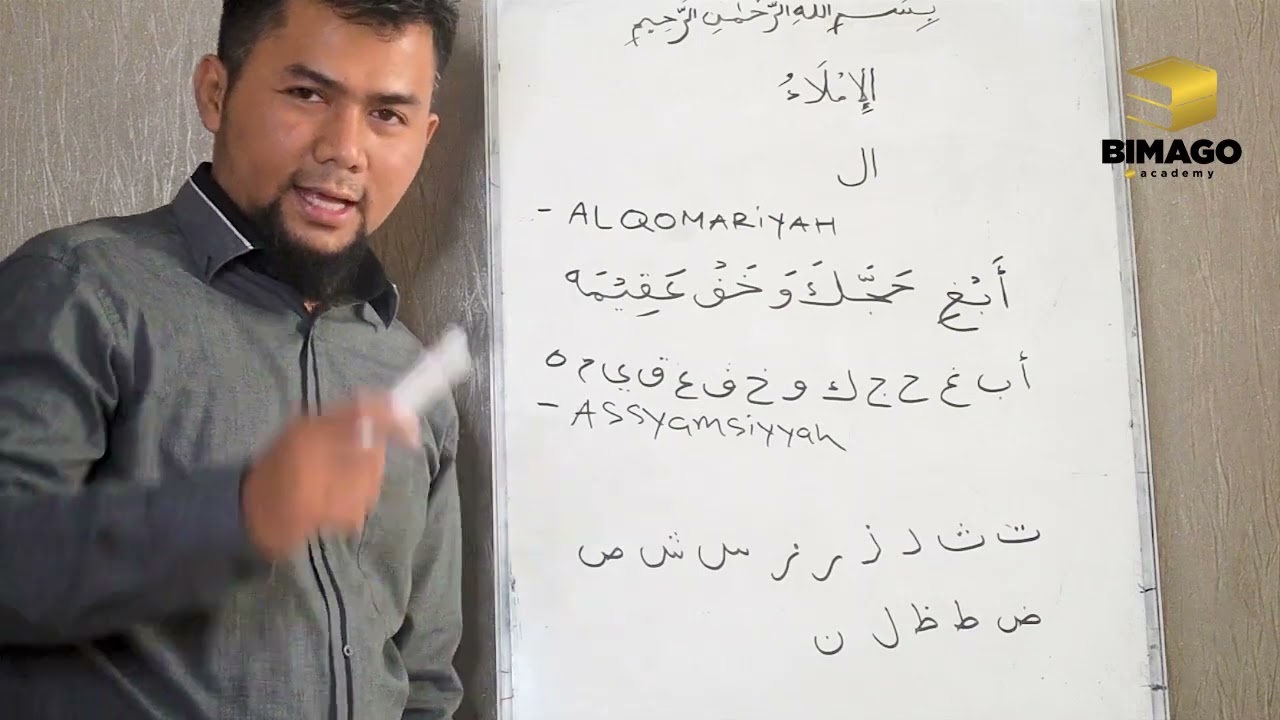 بِسْمِ اللهِ الرَّحْمٰنِ الرَّحِيْمِ
الإِمْلَاءُ
ال
- ALQOMARiYAH
أَبْغِ حَجَّكَ وَ خَفْ عَقِيْمَه
أ ب غ ح ج ك و خ ف ع ق ي م ه
- ASSyamsiyyah
ت ث د ذ ر ز س ش ص
ض ط ظ ل ن
BIMAGO
academy